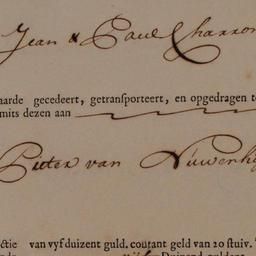 Jean & Paul Charron
aarde gecedeert, getransporteert, en opgedragen t
mits dezen aan
Pieter van
ctie van vyf duizent guld. courant geld van 20 stuiv.
Duizend guldens